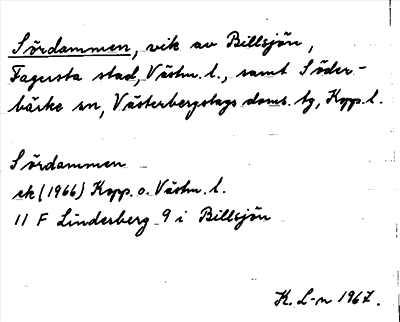 Sördammen, vik av Billsjön,
Fagersta stad, Västm. l., samt Söder-
bärke sn, Västerbergslags doms. tg, Kopp. l.
Sördammen
ek (1966) Kopp. o. Västm. l.
11 F Linderberg 9 i Billsjön
K. L-n 1967.